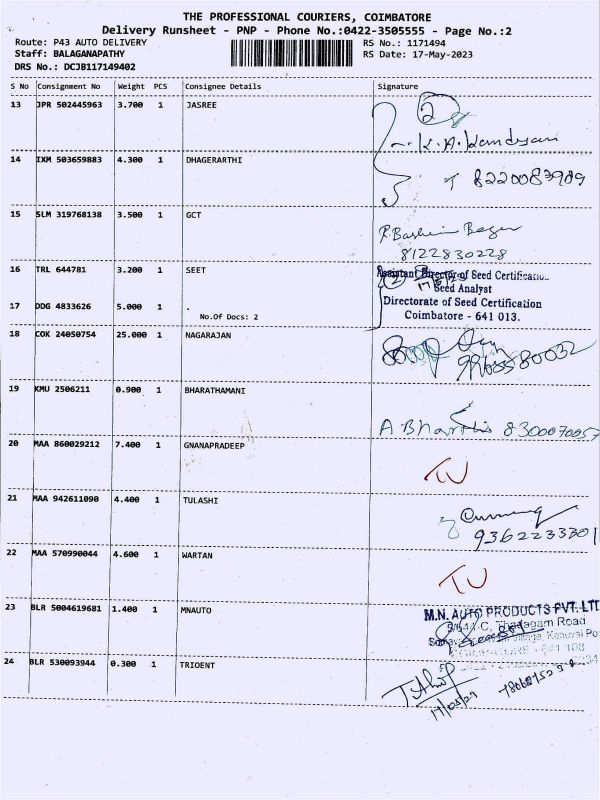 THE PROFESSIONAL COURIERS, COIMBATORE
Delivery Runsheet - PNP - Phone No.:0422-3505555 - Page No.:2
Route: P43 AUTO DELIVERY RS No.: 1171494
Staff: BALAGANAPATHY RS Date: 17-May-2023
DRS No.: DCJB117149402
S No Consignment No Weight PCS Consignee Details Signature
13 JPR 502445963 3.700 1 JASREE
2
14 IXM 503659883 4.300 1 DHAGERARTHI
8220083989
15 SLM 319768138 3.500 1 GCT
8122830228
16 TRL 644781 3.200 1 SEET
Assistant Director of Seed Certification
Seed Analyst
17 DDG 4833626 5.000 1 .
No.Of Docs: 2
Directorate of Seed Certification
Coimbatore - 641 013.
18 COK 24050754 25.000 1 NAGARAJAN
19 KMU 2506211 0.900 1 BHARATHAMANI
8300070057
20 MAA 860029212 7.400 1 GNANAPRADEEP
TU
21 MAA 942611090 4.400 1 TULASHI
9362233301
22 MAA 570990044 4.600 1 WARTAN
TU
23 BLR 5004619681 1.400 1 MNAUTO
M.N. AUTO PRODUCTS PVT. LTD
Thadagam Road
24 BLR 530093944 0.300 1 TRIOENT
17/05/23